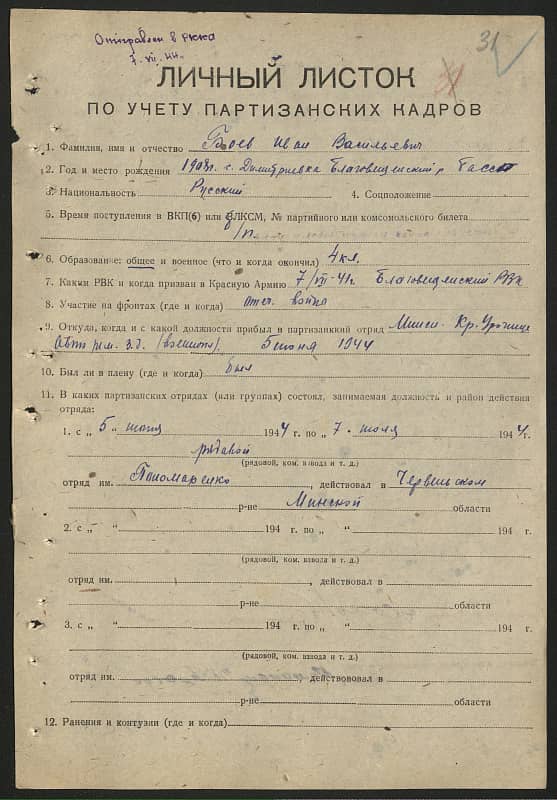 Отправлен в РККА
7. VII. 44.
31
ЛИЧНЫЙ ЛИСТОК
ПО УЧЕТУ ПАРТИЗАНСКИХ КАДРОВ
1. Фамилия, имя и отчество Боев Иван Васильевич
2. Год и место рождения 1908г. с. Димитриевка Благовещенский р.
3. Национальность Русский 4. Соцположение
5. Время поступления в ВКП(б) или ВЛКСМ, № партийного или комсомольского билета
б/п.
6. Образование: общее и военное (что и когда окончил) 4 кл.
7. Каким РВК и когда призван в Красную Армию 7/VII-41г. Благовещенский РВК
8. Участие на фронтах (где и когда) отеч. война
9. Откуда, когда и с какой должности прибыл в партизанский отряд Минск. Кр. Урочище
5 июня 1944
10. Был ли в плену (где и когда) был
11. В каких партизанских отрядах (или группах) состоял, занимаемая должность и район действия
отряда:
1. с „ 5 „ июня 1944 г. по „ 7 . июля 1944 г.
рядовой
(рядовой, ком. взвода и т. д.)
отряд им. Пономаренко , действовал в Червенском
р-не Минской области
2. с „ “ 194 г. по „ “ 194 г.
(рядовой, ком. взвода и т. д.)
отряд им. , действовал в
р-не области
3. с „ “ 194 г. по „ “ 194 г.
(рядовой, ком. взвода и т. д.)
отряд им. , действовал в
р-не области
12. Ранения и контузии (где и когда)